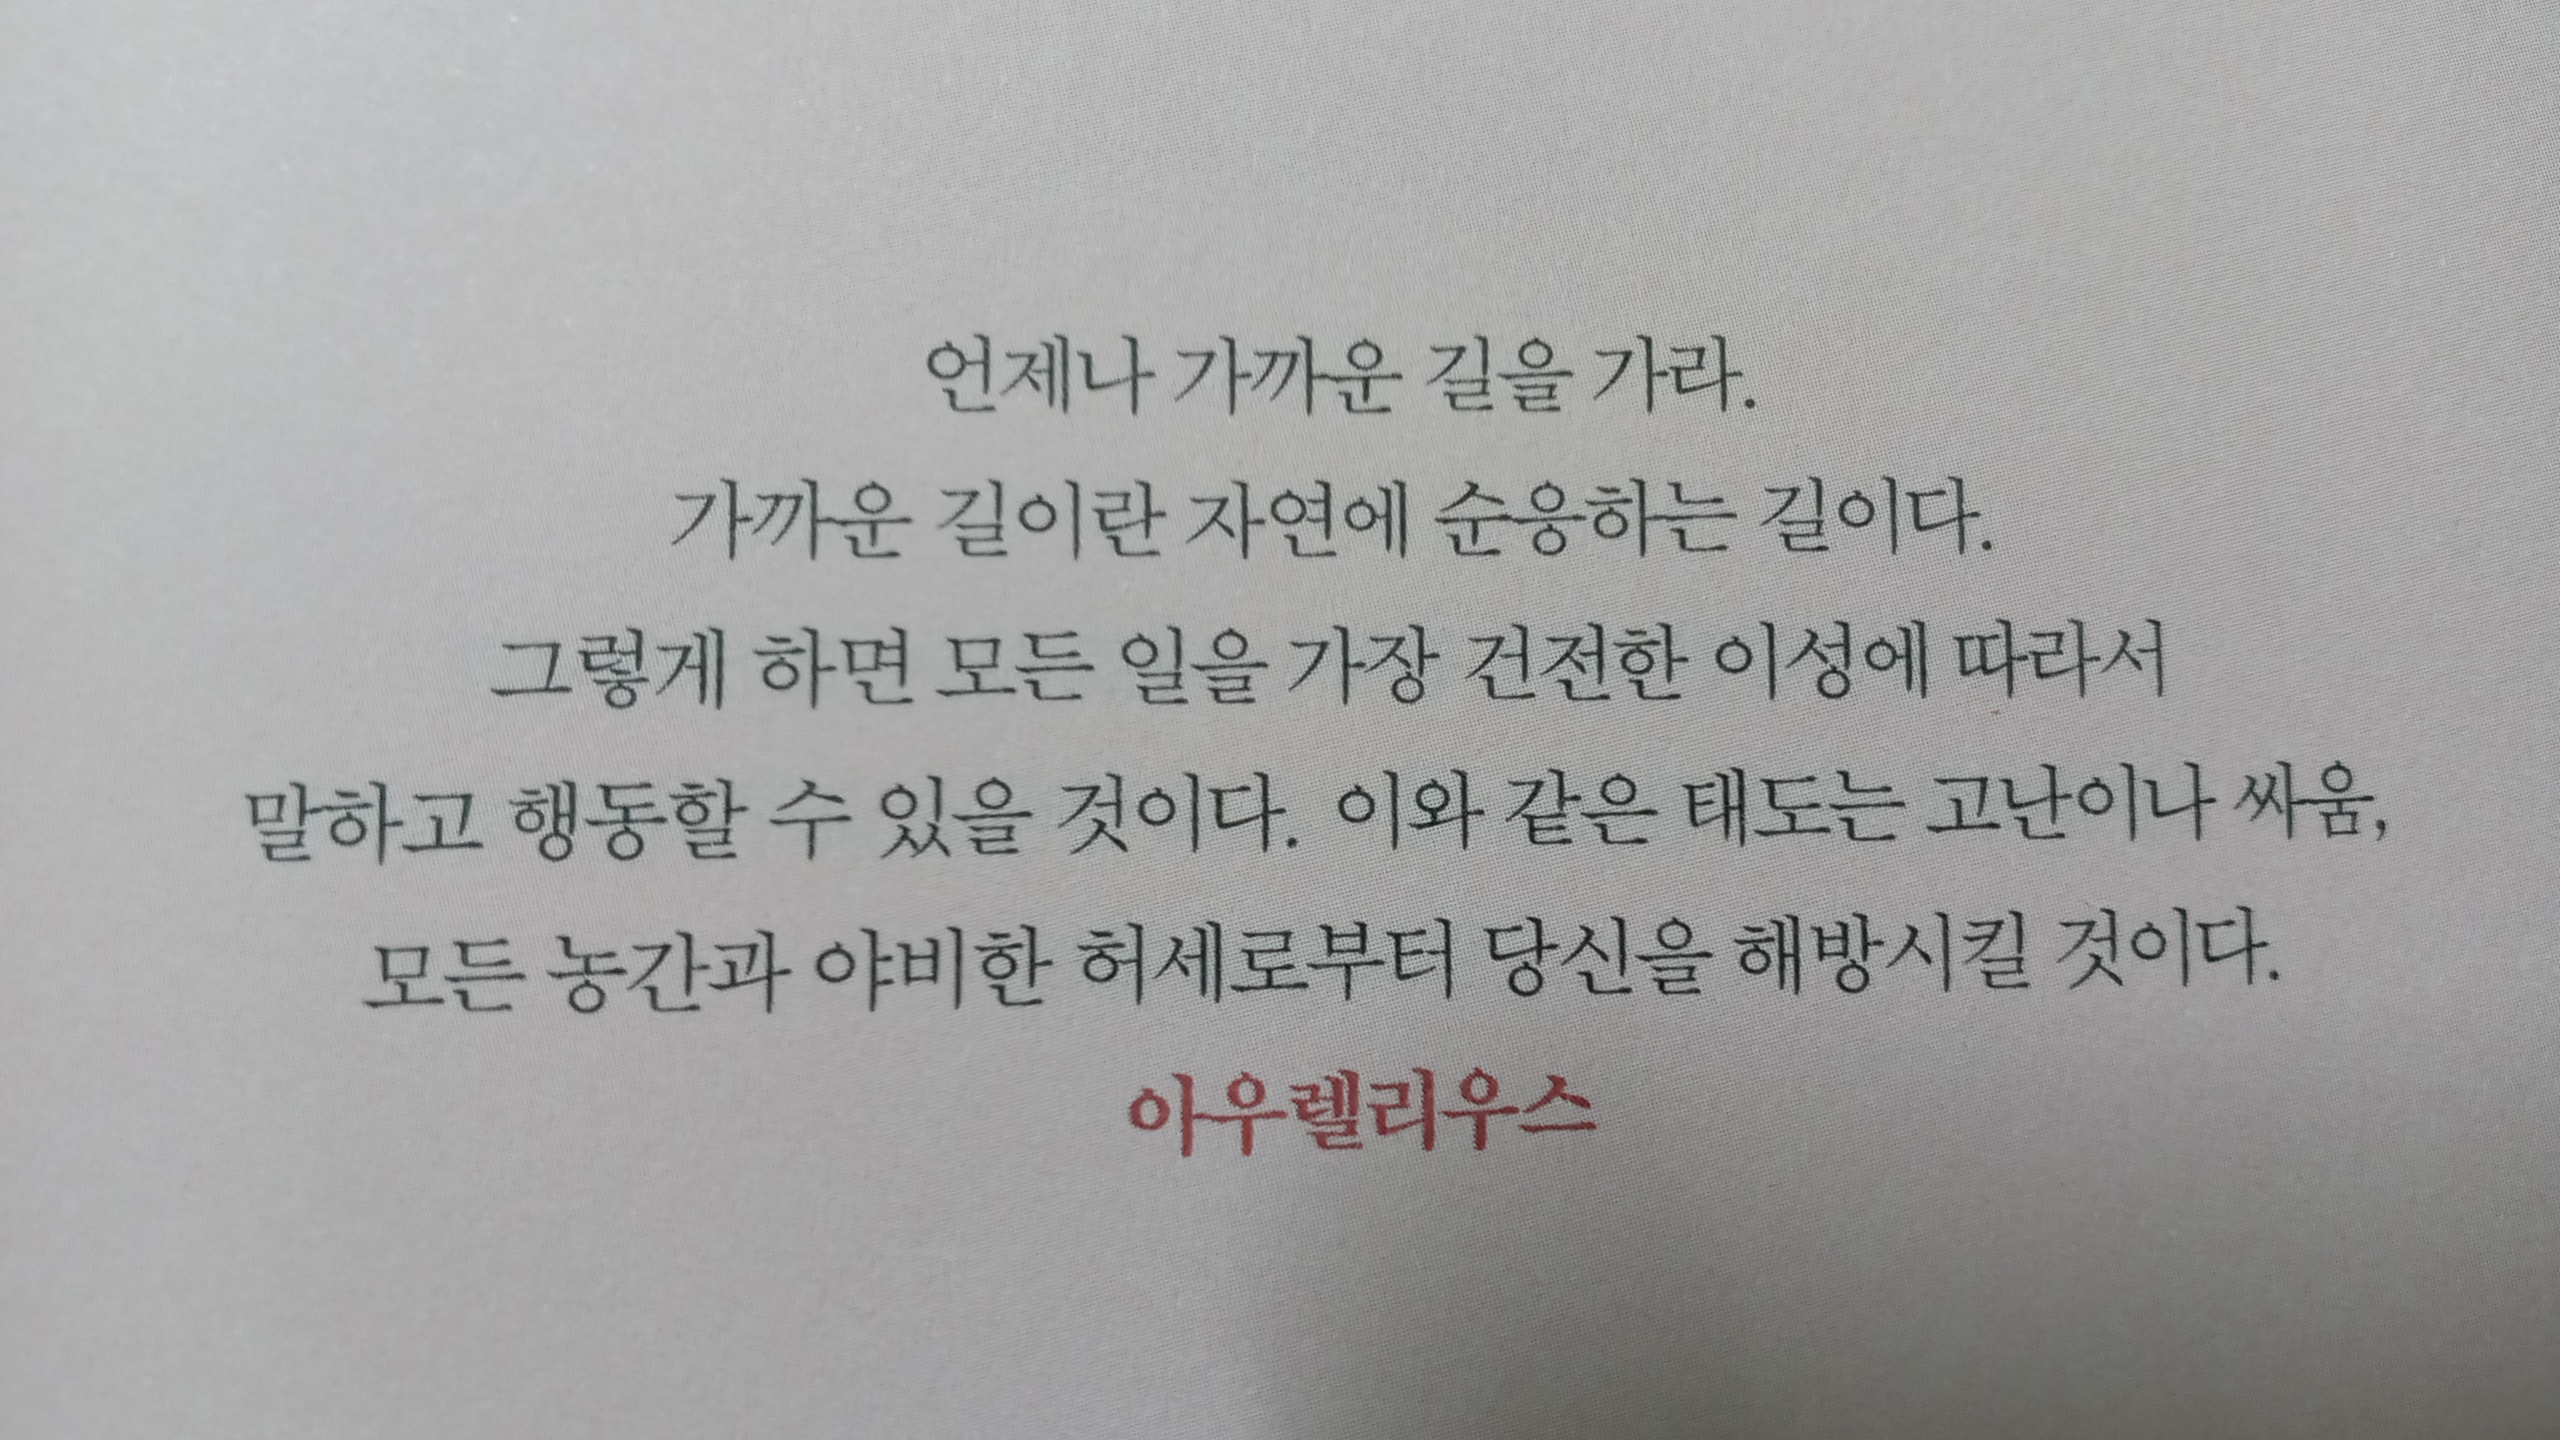 언제나 가까운 길을 가라.
가까운 길이란 자연에 순응하는 길이다.
그렇게 하면 모든 일을 가장 건전한 이성에 따라서
말하고 행동할 수 있을 것이다. 이와 같은 태도는 고난이나 싸움,
모든 농간과 야비한 허세로부터 당신을 해방시킬 것이다.
아우렐리우스